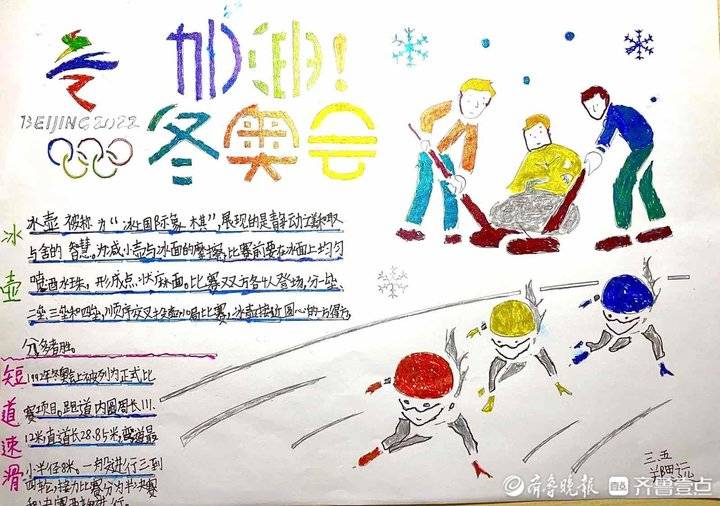 加油！
冬奥会
BEIJING 2022
冰壶
冰壶被称为“冰上国际象棋”，展现的是静动之间取
与舍的智慧。为减小壶与冰面的摩擦，比赛前要在冰面上均匀
喷洒水珠，形成点状麻面。比赛双方各4人登场，分一垒、
二垒、三垒和四垒，顺序交叉
比赛，冰壶接近圆心的一方得分，
分多者胜。
短道速滑
1992年冬奥会上被列为正式比
赛项目。跑道内圆周长111.
12米，直道长28.85米，弯道最
小半径8米。一般进行三到
四轮，接力比赛分为半决赛
和决赛两轮进行。
三.五
齐鲁晚报
齐鲁壹点